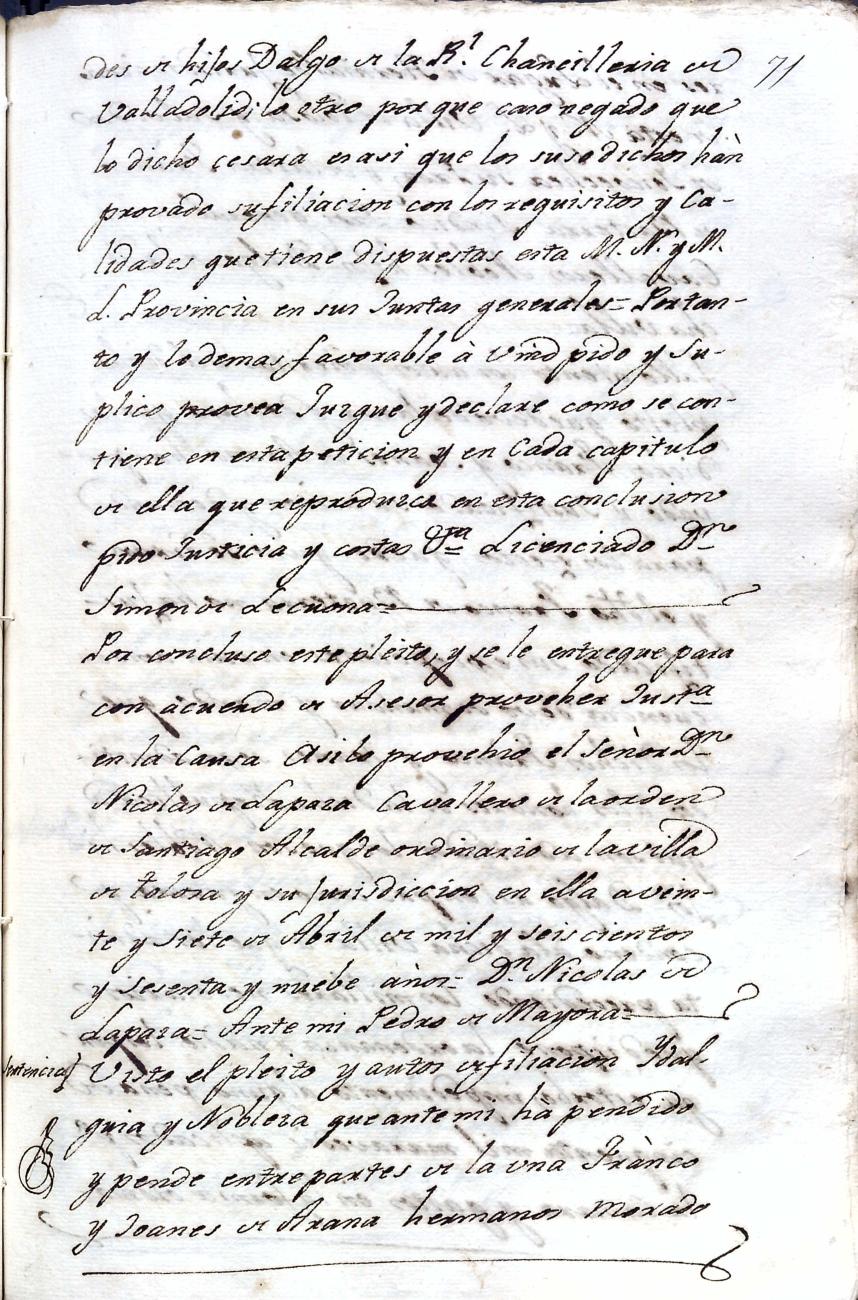 71
des de hijos Dalgo de la Rl. Chancilleria de
Valladolid; lo otro por que caso negado que
lo dicho çesara es asi que los suso dichos hàn
provado su filiacion con los requisitos y Ca-
lidades que tiene dispuestas esta M. N. y M.
L. Provincia en sus Juntas generales= Portan-
to y lo demas favorable à vmd pido y su-
plico provea Juzgue y declare como se con-
tiene en esta peticion y en Cada capitulo
de ella que reproduzca en esta conclusion
pido Justicia y costas &ra Licenciado Dn
Simon de Lecuona=
Por concluso este pleito, y se le entregue para
con acuerdo de Asesor proveher Justa
en la Causa Asi lo provehio el Señor Dn
Nicolas de Lapaza Cavallero de la orden
de Santiago Alcalde ordinario de la villa
de tolosa y su Jurisdiccion en ella a vein-
te y siete de Abril de mil y seis cientos
y sesenta y nuebe años= Dn. Nicolas de
Lapaza= Ante mi Pedro de Mayora=
Sentencia} Visto el pleito y autos de filiacion Ydal-
guia y Nobleza que ante mi hà pendido
y pende entre partes de la una Frànco
y Joanes de Arana hermanos Morado